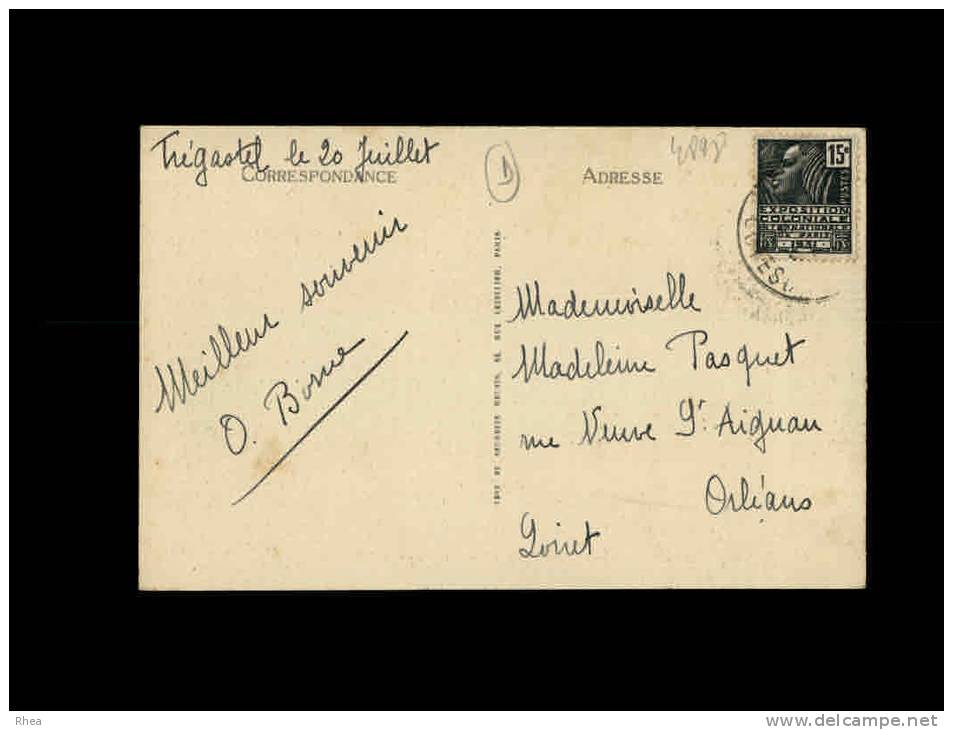 Trégastel le 20 Juillet
CORRESPONDANCE
Meilleur souvenir
O. Borne
ADRESSE
15c
POSTES
EXPOSITION
COLONIALE
INTERNATIONALE
DE PARIS
1931
Mademoiselle
Madeleine Pasquet
rue Neuve St Aignan
Orléans
Loiret
Rhea
www.delcampe.net